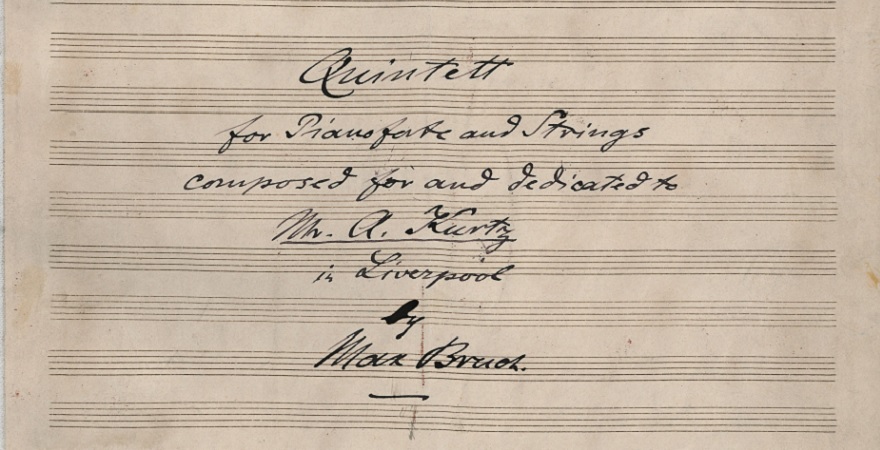 Quintett
for Pianoforte and Strings
composed for and dedicated to
Mr. A. Kurtz
in Liverpool
by
Max Bruch.